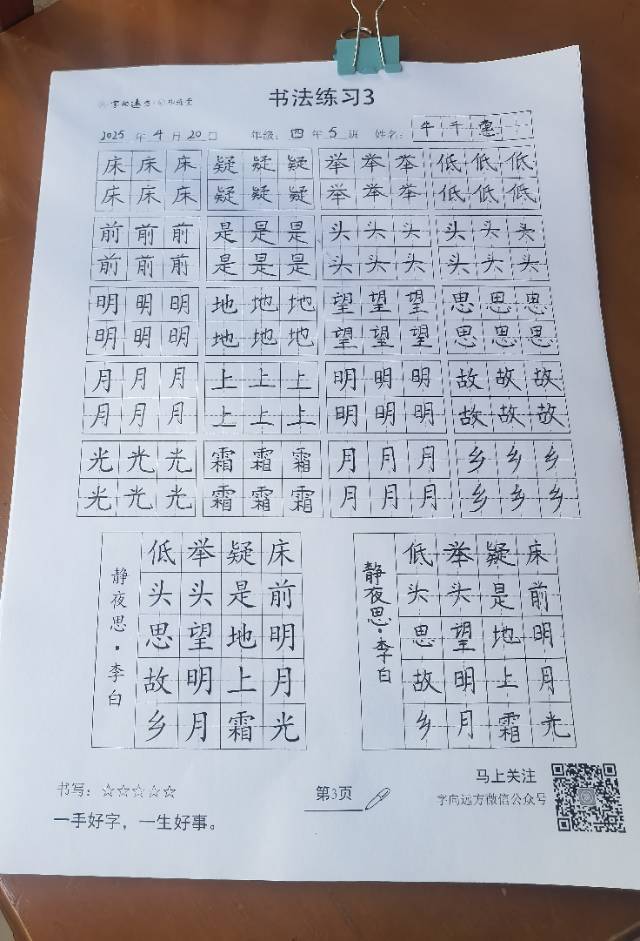 书法练习3
2025 年 4 月 20 日 年级: 四 年 5 班 姓名: 牛 千 惠
床 床 床 疑 疑 疑 举 举 举 低 低 低
床 床 床 疑 疑 疑 举 举 举 低 低 低
前 前 前 是 是 是 头 头 头 头 头 头
前 前 前 是 是 是 头 头 头 头 头 头
明 明 明 地 地 地 望 望 望 思 思 思
明 明 明 地 地 地 望 望 望 思 思 思
月 月 月 上 上 上 明 明 明 故 故 故
月 月 月 上 上 上 明 明 明 故 故 故
光 光 光 霜 霜 霜 月 月 月 乡 乡 乡
光 光 光 霜 霜 霜 月 月 月 乡 乡 乡
床前明月光
疑是地上霜
举头望明月
低头思故乡
静夜思·李白
床前明月光
疑是地上霜
举头望明月
低头思故乡
静夜思·李白
书写: ☆☆☆☆☆
一手好字，一生好事。
第3页
马上关注
字向远方微信公众号